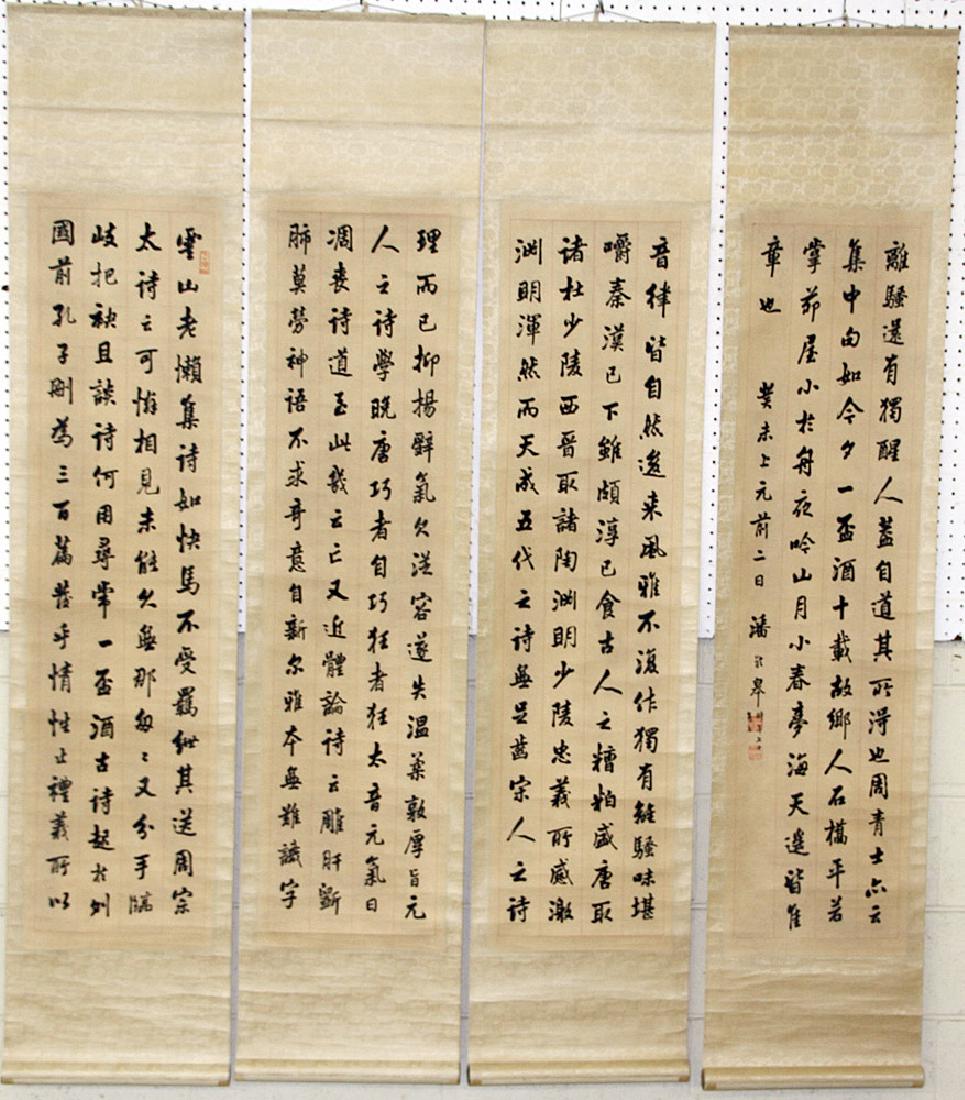 雲山老懶集詩如快馬不受羈紲其送周宗
太詩云可惜相見未能久無那匆〻又分手臨
岐把袂且談詩何用尋常一盃酒古詩起於列
國前孔子刪為三百篇發乎情性止禮義所以
音律皆自然邇来風雅不復作獨有離騷味堪
嚼秦漢已下雖頗淳已食古人之糟粕盛唐取
諸杜少陵西晉取諸陶淵明少陵忠義所感激
淵明渾然而天成五代之詩無足齒宋人之詩
理而已抑揚辭氣欠從容遂失溫柔敦厚旨元
人之詩學晚唐巧者自巧狂者狂太音元氣日
凋喪詩道至此幾云亡又近體論詩云雕肝斲
肺莫勞神語不求奇意自新尔雅本無難識字
離騷還有獨醒人蓋自道其所淂也周青士亦云
集中句如今夕一盃酒十載故鄉人石橋平若
掌茆屋小於舟夜吟山月小春夢海天遙皆佳
章也 癸未上元前二日 潘齡皋